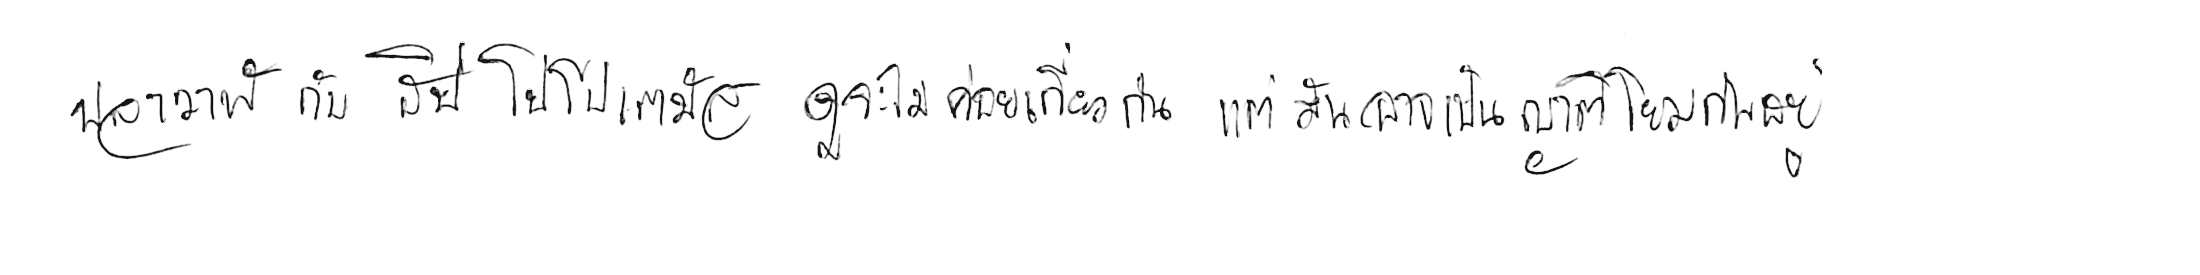 ปลาวาฬ กับ ฮิปโปโปเตมัส ดูจะไม่ค่อยเกี่ยวกัน แต่ มันอาจเป็น ญาติโยมกันอยู่